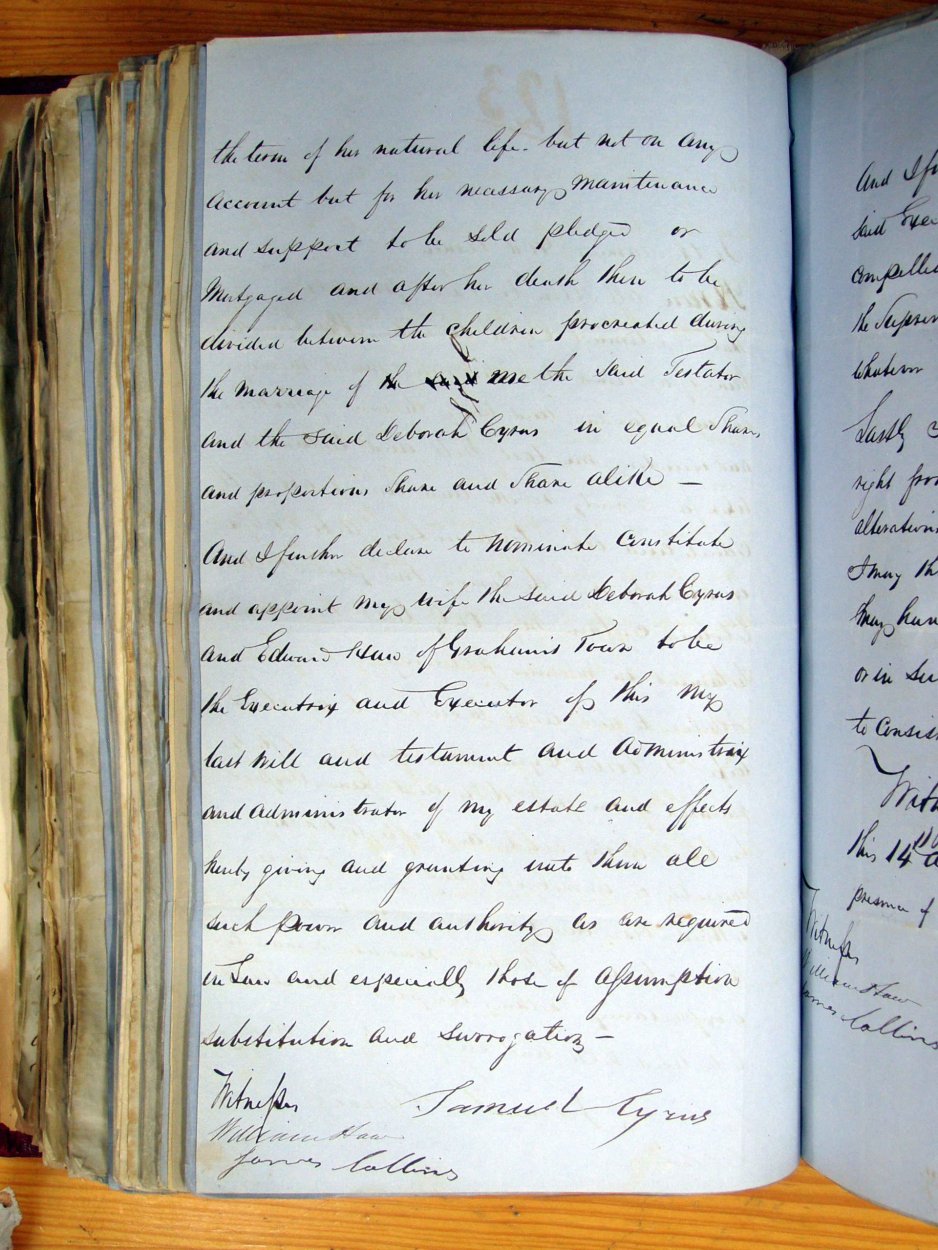 the term of her natural life. but not on any
account but for her necessary maintenance
and support to be sold pledged or
Mortgaged and after her death then to be
divided between the children procreated during
the marriage of the me the said Testator
and the said Deborah Cyrus in equal Shares
and proportions Share and Share alike —
And I further declare to nominate constitute
and appoint my wife the said Deborah Cyrus
and Edward Haw of Grahams Town to be
the Executrix and Executor of this my
last will and testament and administratrix
and administrator of my estate and effects
hereby giving and granting unto them all
such power and authority as are required
in Law and especially those of assumption
substitution and surrogation —
Witnesses
Samuel Cyrus
William Haw
James Collins
And I fu
said Exec
compelled
the Suprem
whatever
Lastly
right from
alteration
I may th
may hav
or in su
to consis
Witn
this 14th
presence of
Witness
William Haw
James Collins